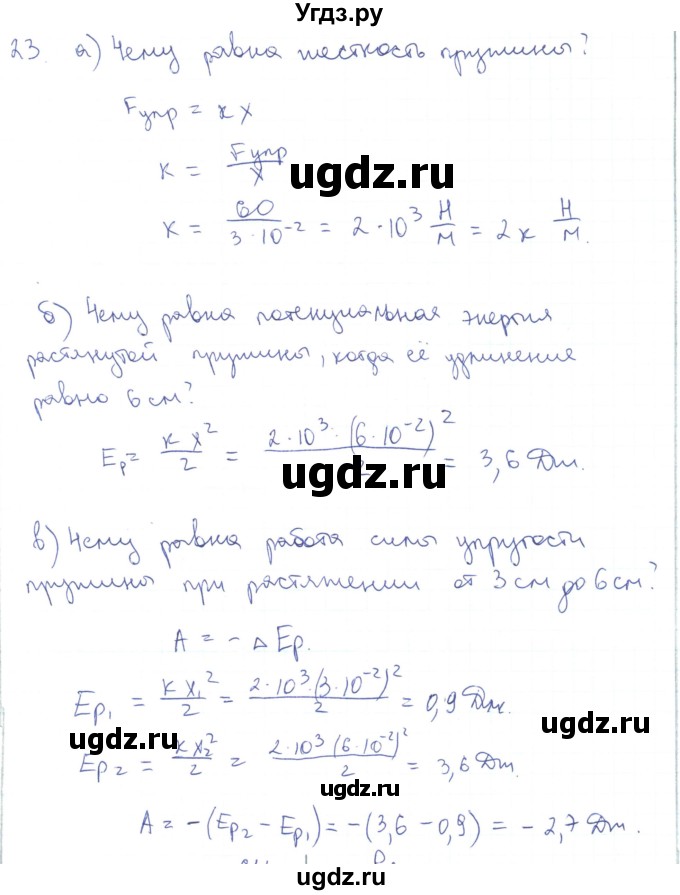 Угдз.ру
23. а) Чему равна жесткость пружины?
Fупр = kx
k = Fупр / x
ugdz.ru
k = 60 / 3·10⁻² = 2·10³ Н/м = 2к Н/м.
б) Чему равна потенциальная энергия
растянутой пружины, когда её удлинение
равно 6 см?
Ep = kx²/2 = 2·10³·(6·10⁻²)²/2 = 3,6 Дж.
ugdz.ru
в) Чему равна работа силы упругости
пружины при растяжении от 3 см до 6 см?
A = - ΔEp.
Ep₁ = kx₁²/2 = 2·10³·(3·10⁻²)²/2 = 0,9 Дж.
ugdz.ru
ugdz.ru
Ep₂ = kx₂²/2 = 2·10³(6·10⁻²)²/2 = 3,6 Дж.
A = -(Ep₂ - Ep₁) = -(3,6 - 0,9) = - 2,7 Дж.
ugdz.ru